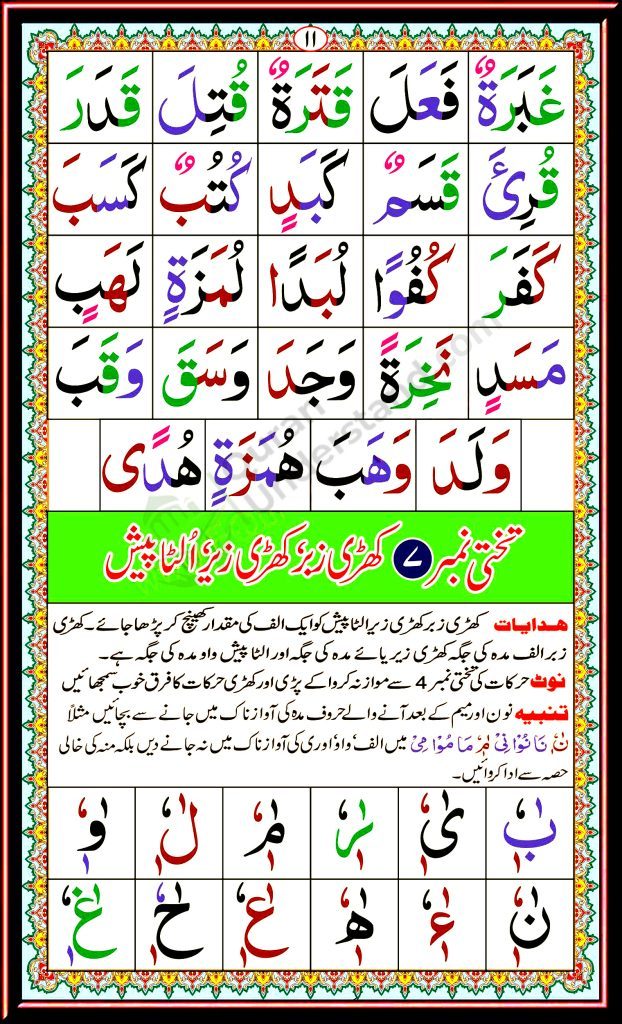 ١١
غَبَرَةٌ فَعَلَ قَتَرَةٌ قُتِلَ قَدَرَ
قُرِئَ قَسَمٌ كَبَدٍ كُتُبٌ كَسَبَ
كَفَرَ كُفُوًا لُبَدًا لُمَزَةٍ لَهَبٍ
مَسَدٍ نَخِرَةً وَجَدَ وَسَقَ وَقَبَ
وَلَدَ وَهَبَ هُمَزَةٍ هُدًى
تختی نمبر ٧ کھڑی زبرَ کھڑی زیرِ اُلٹا پیش
ھدایات کھڑی زبر کھڑی زیر الٹا پیش کو ایک الف کی مقدار کھینچ کر پڑھا جائے۔ کھڑی
زبر الف مدہ کی جگہ کھڑی زیر یائے مدہ کی جگہ اور الٹا پیش واو مدہ کی جگہ ہے۔
نوٹ حرکات کی تختی نمبر 4 سے موازنہ کروا کے پڑی اور کھڑی حرکات کا فرق خوب سمجھائیں
تنبیہ نون اور میم کے بعد آنے والے حروف مدہ کی آواز ناک میں جانے سے بچائیں مثلاً
نٰ نَا نُوْا نِیْ مٰ مَا مُوْا مِیْ میں الف واو اور ی کی آواز ناک میں نہ جانے دیں بلکہ منہ کی خالی
حصہ سے ادا کروائیں۔
بٰٖٗ یٰٖٗ رٰٖٗ مٰٖٗ لٰٖٗ وٰٖٗ
نٰٖٗ ءٰٖٗ ھٰٖٗ عٰٖٗ حٰٖٗ غٰٖٗ
Quran Understand.com